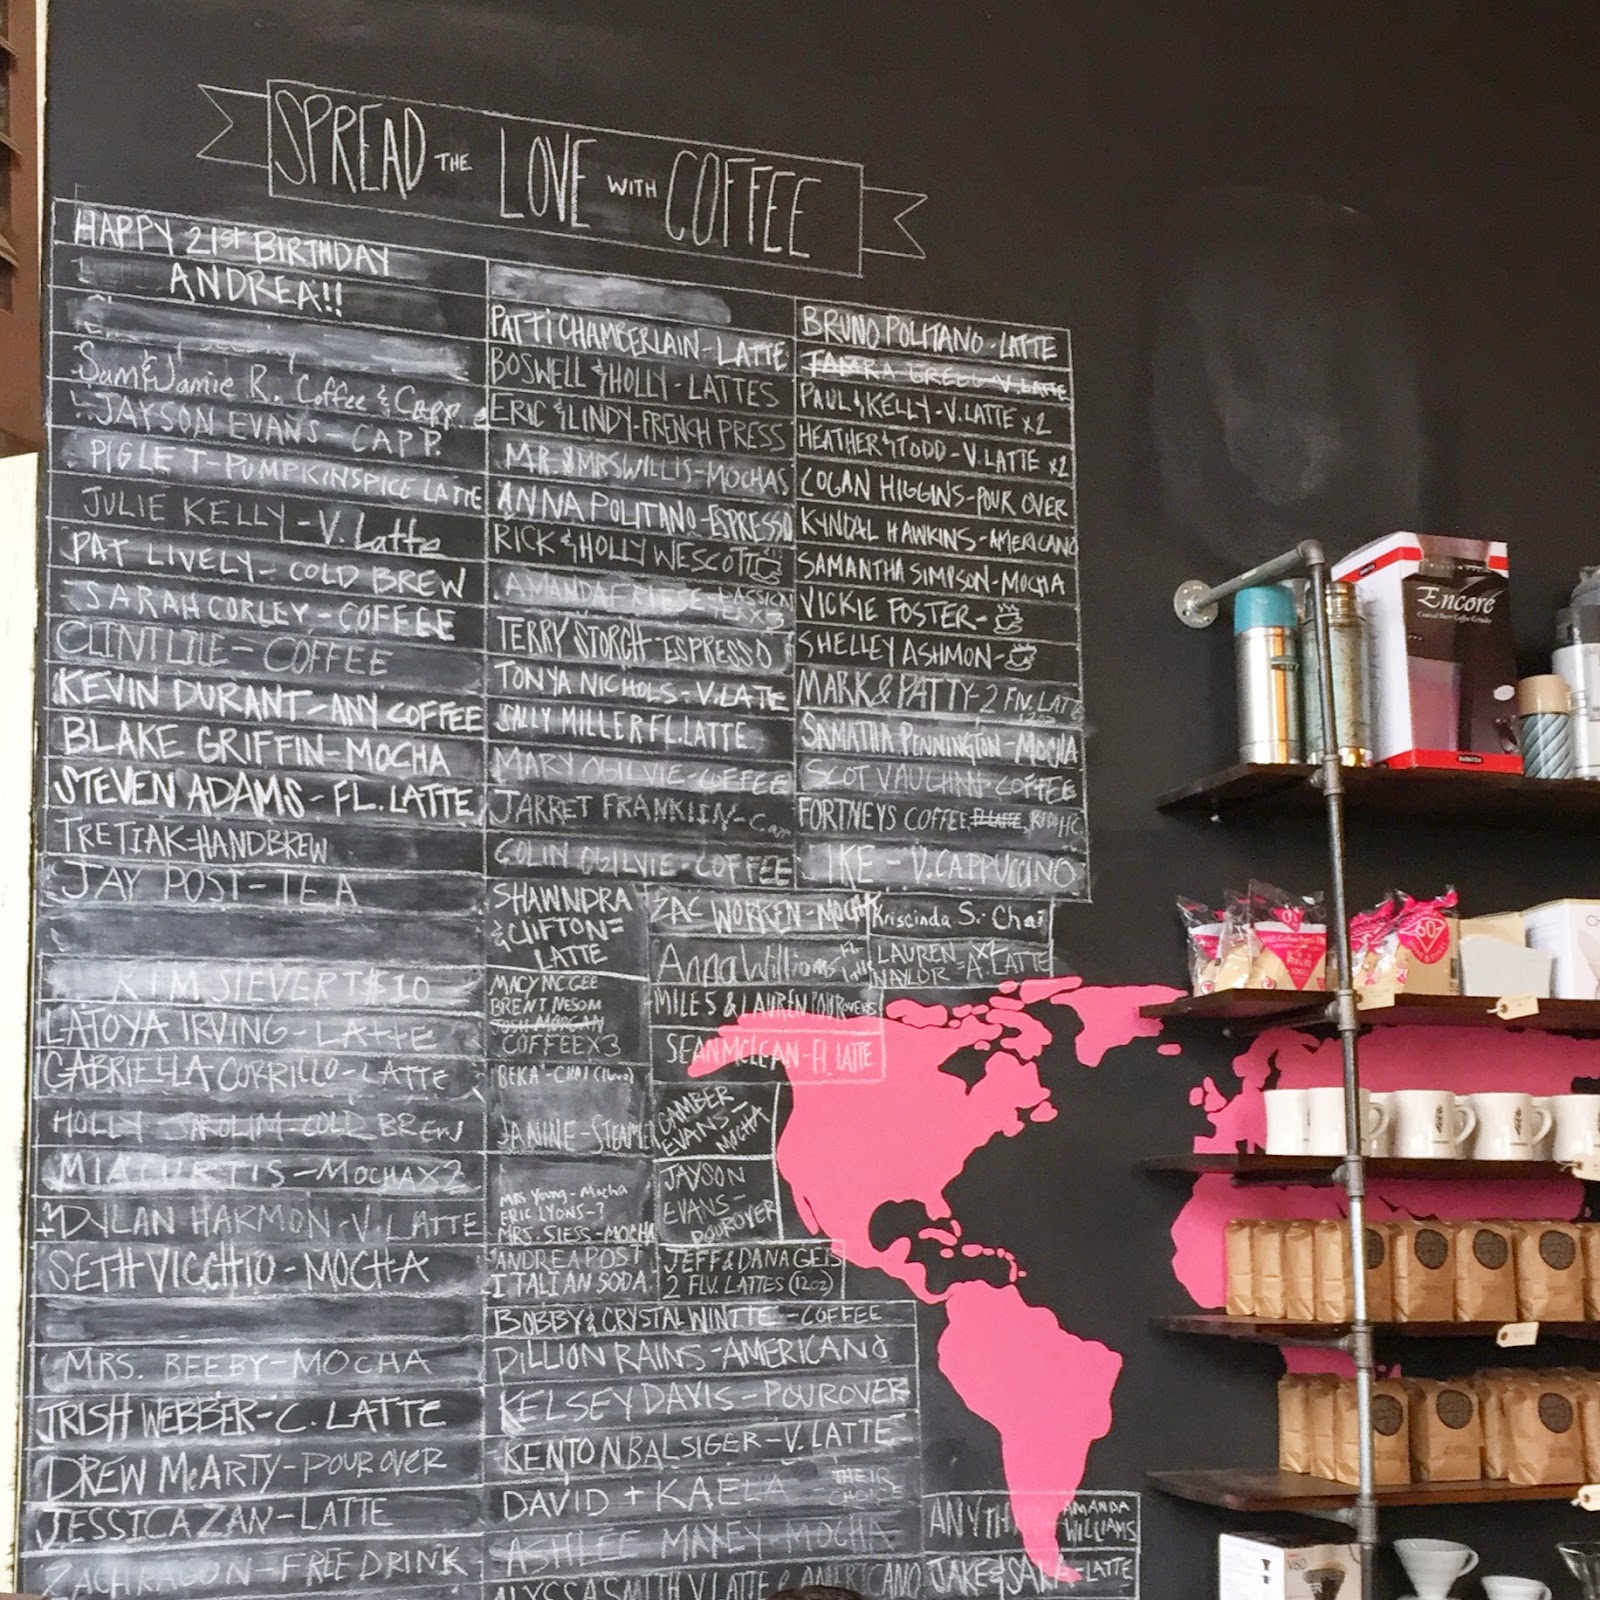 SPREAD THE LOVE WITH COFFEE
HAPPY 21st BIRTHDAY
ANDREA!!
Sam & Jamie R. Coffee & Capp.
JAYSON EVANS - CAPP.
PIGLET - PUMPKIN SPICE LATTE
JULIE KELLY - V. Latte
PAT LIVELY - COLD BREW
SARAH CORLEY - COFFEE
CLINT LILE - COFFEE
KEVIN DURANT - ANY COFFEE
BLAKE GRIFFIN - MOCHA
STEVEN ADAMS - FL. LATTE
TRETIAK - HANDBREW
JAY POST - TEA
KIM SIEVERT $10
LATOYA IRVING - LATTE
GABRIELLA CORRILLO - LATTE
HOLLY JAROLIM - COLD BREW
MIA CURTIS - MOCHA x2
DYLAN HARMON - V. LATTE
SETH VICCHIO - MOCHA
MRS. BEEBY - MOCHA
TRISH WEBBER - C. LATTE
DREW McARTY - POUR OVER
JESSICA ZAN - LATTE
ZACH RAGON - FREE DRINK
PATTI CHAMBERLAIN - LATTE
BOSWELL & HOLLY - LATTES
ERIC & LINDY - FRENCH PRESS
MR. & MRS WILLIS - MOCHAS
ANNA POLITANO - ESPRESSO
RICK & HOLLY WESCOTT
AMANDA FRIESE - PASSION TEA x3
TERRY STORCH - ESPRESSO
TONYA NICHOLS - V. LATE
SALLY MILLER FL. LATTE
MARY OGILVIE - COFFEE
JARRET FRANKLIN - Cap
COLIN OGILVIE - COFFEE
SHAWNDRA
& CLIFTON =
LATTE
MACY MCGEE
BRENT NESOM
JOSH MORGAN
COFFEE X3
BEKA - CHAI (16oz)
JANINE - STEAMER
MRS Young - Mocha
ERIC LYONS - ?
MRS. SIESS - MOCHA
ANDREA POST
ITALIAN SODA
BOBBY & CRYSTAL WINTTE - COFFEE
DILLION RAINS - AMERICANO
KELSEY DAVIS - POUROVER
KENTON BALSIGER - V. LATTE
DAVID + KAELA THEIR CHOICE
ASHLEE MAXEY - MOCHA
ALYSSA SMITH V LATTE & AMERICANO
BRUNO POLITANO - LATTE
TAMRA GRELL - V. LATTE
PAUL & KELLY - V. LATTE x2
HEATHER & TODD - V. LATTE x2
LOGAN HIGGINS - POUR OVER
KYNDAL HAWKINS - AMERICANO
SAMANTHA SIMPSON - MOCHA
VICKIE FOSTER -
SHELLEY ASHMON -
MARK & PATTY - 2 FLV. LATT 12oz
SAMATHA PENNINGTON - MOCHA
SCOT VAUGHN - COFFEE
FORTNEYS COFFEE, P LATTE,
IKE - V. CAPPUCCINO
ZAC WORKEN - MOCHA
Kriscinda S. - Chai
Anna Williams Fl. latte
LAUREN x2
NAYLOR = A. LATTE
MILES & LAUREN POUROVERS
SEAN MCLEAN - Fl. LATTE
CAMBER
EVANS -
MOCHA
JAYSON
EVANS -
POUROVER
JEFF & DANA GEIS
2 FLV. LATTES (12oz)
AMANDA
WILLIAMS
JAKE & SARA - LATTE
Encore
BARATZA